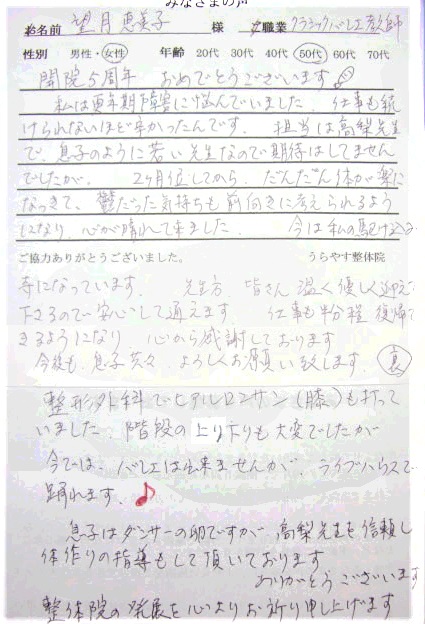 みなさまの声
お名前 望月恵美子 様 ご職業 クラシックバレエ教師
性別 男性・女性 年齢 20代 30代 40代 50代 60代 70代
開院5周年 おめでとうございます
私は更年期障害に悩んでいました。仕事も続
けられないほど辛かったんです。担当は高梨先生
で、息子のように若い先生なので期待はしてません
でしたが、2ヶ月位してから、だんだん体が楽に
なってきて、鬱だった気持ちも前向きに考えられるよう
になり、心が晴れて来ました。今は私の駆け込み
ご協力ありがとうございました。 うらやす整体院
寺になっています。先生方 皆さん 温く優しく迎えて
下さるので安心して通えます。仕事も半分程 復帰で
きるようになり、心から感謝しております
今後も、息子共々、よろしくお願い致します。 裏
整形外科でヒアルロンサン(膝)も打って
いました。階段の上り下りも大変でしたが
今では、バレエは出来ませんが、ライブハウスで
踊れます。
息子はダンサーの卵ですが 高梨先生を信頼し
体作りの指導もして頂いております
ありがとうございます
整体院の発展を心よりお祈り申し上げます